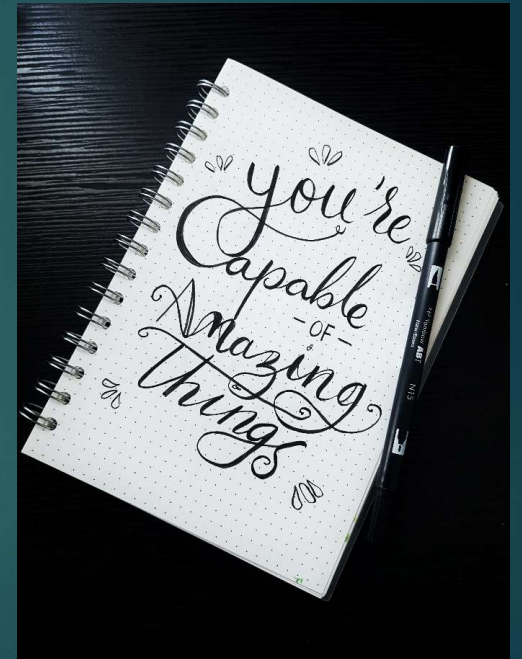 you're
Capable
-OF-
Amazing
Things
Tombow ABT
N15